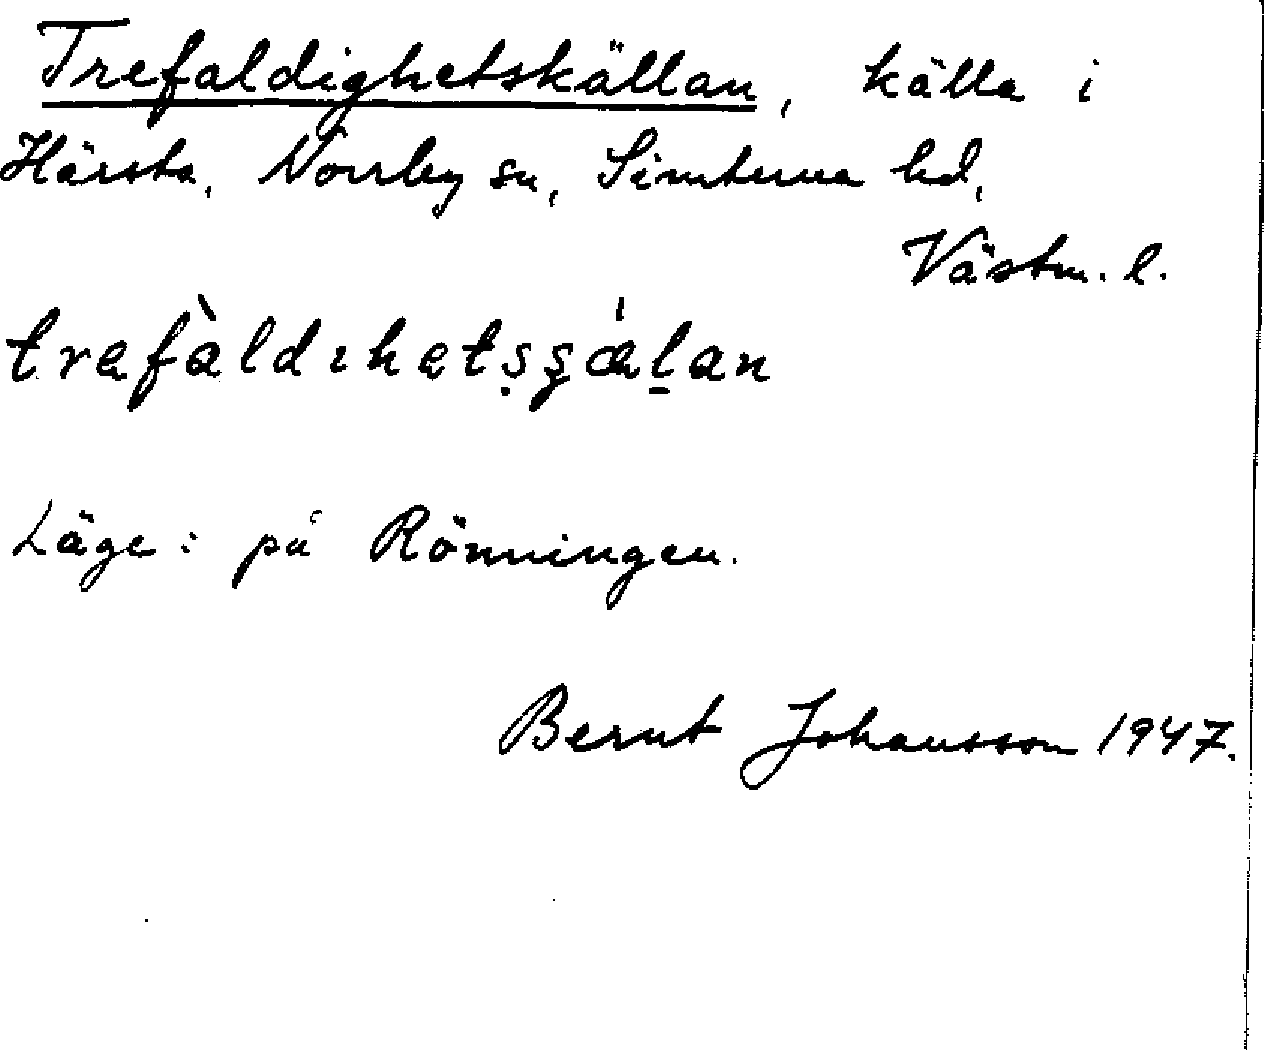 Trefaldighetskällan, källa i
Härsta, Norrby sn, Simtuna hd,
Västm. l.
trefàldıhetsṣ̌ǽḻan
Läge: på Rönningen.
Bernt Johansson 1947.